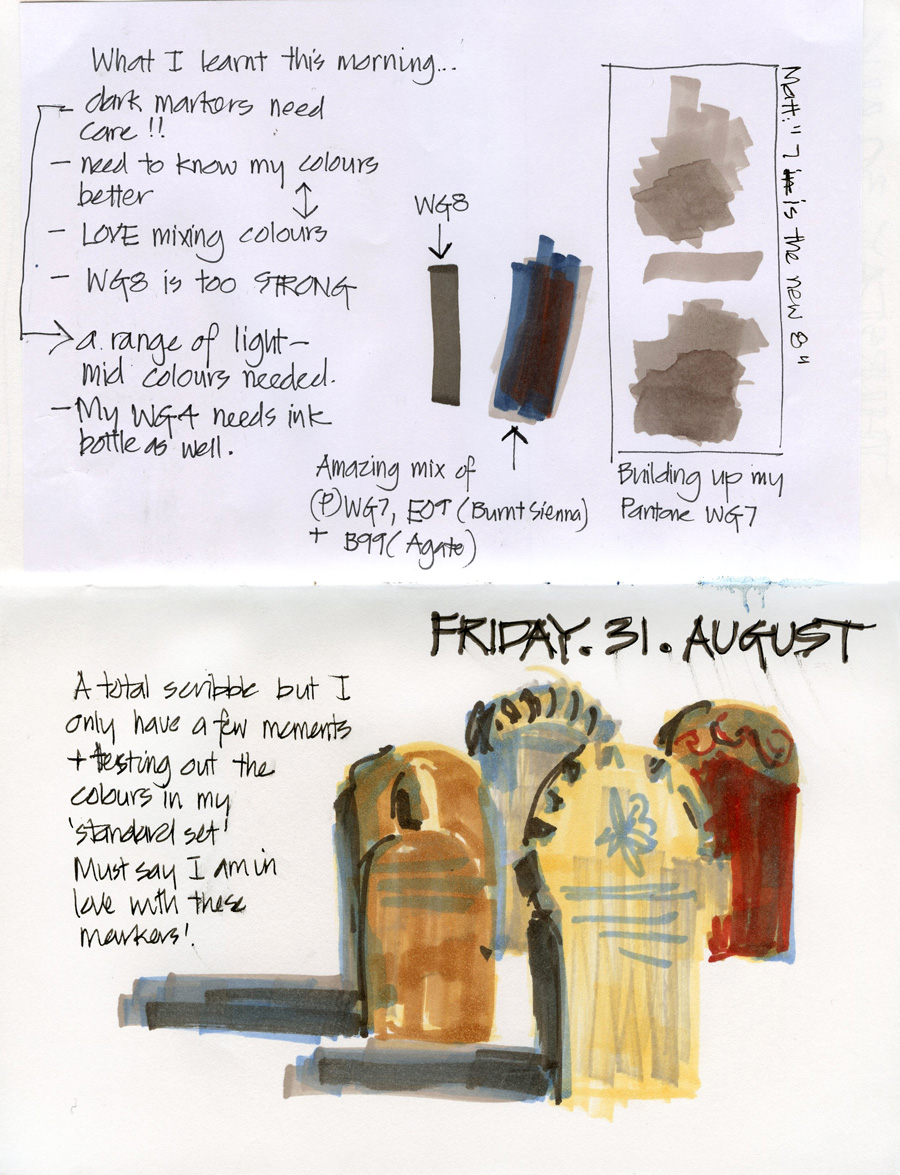 What I learnt this morning...
- dark markers need
care !!
- need to know my colours
better
- LOVE mixing colours
- WG8 is too STRONG
a range of light-
mid colours needed.
- My WG4 needs ink
bottle as well.
WG8
Amazing mix of
(P) WG7, E09 (Burnt Sienna)
+ B99 (Agate)
Matt: "7 is the new 8"
Building up my
Pantone WG7
FRIDAY. 31. AUGUST
A total scribble but I
only have a few moments
+ testing out the
colours in my
'standard set'
Must say I am in
love with these
markers!